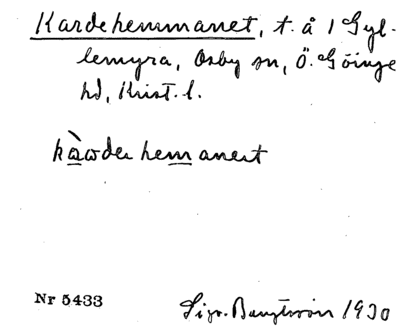 Kardehemmanet, t. å 1 Gyl-
lemyra, Osby sn, Ö. Göinge
hd, Krist. l.
Nr 5433
Sigv. Bengtsson 1930